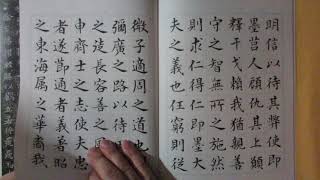 明信以待其弊使即
墨莒人顧仇其上願
釋干戈賴我猶親善
守之智無所之施然
則求仁得仁即墨大
夫之義也任窮則從
微子適周之道也
彌廣之路以待田
之徒長容善之風
申齊士之志使夫忠
者遂節通者義著昭
之東海属之華裔我